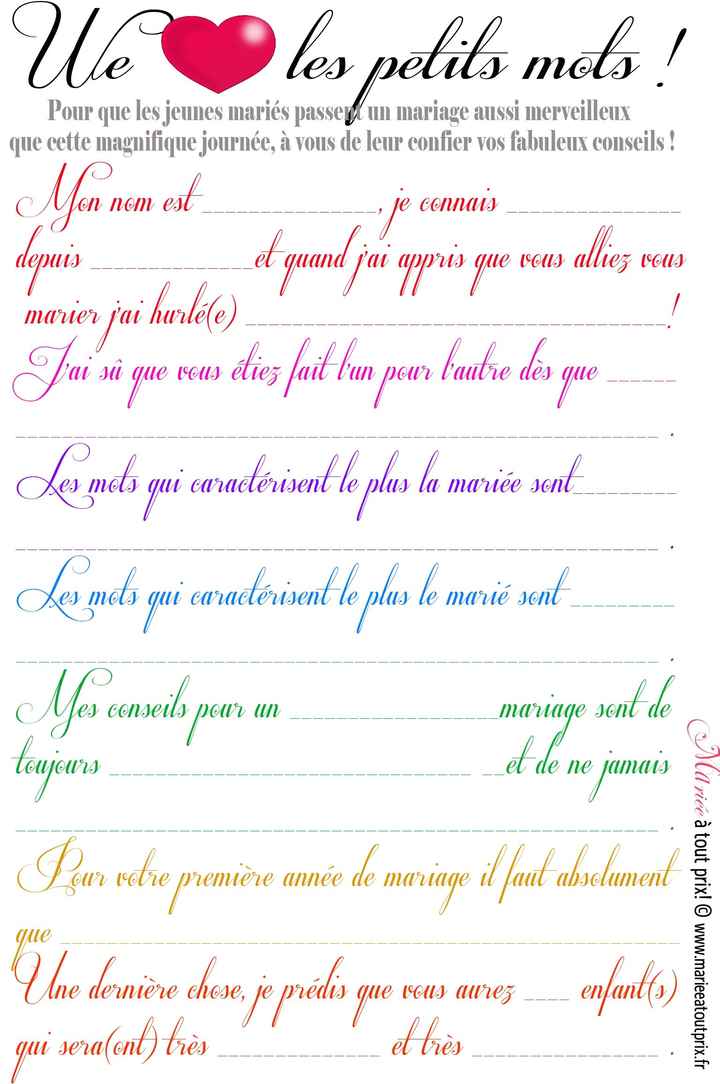 We les petits mots !
Pour que les jeunes mariés passent un mariage aussi merveilleux
que cette magnifique journée, à vous de leur confier vos fabuleux conseils !
Mon nom est _______________, je connais _______________
depuis ______________et quand j'ai appris que vous alliez vous
marier j'ai hurlé(e) ____________________________________!
J'ai sû que vous étiez fait l'un pour l'autre dès que ______
_______________________________________________________ .
Les mots qui caractérisent le plus la mariée sont_________
_______________________________________________________ .
Les mots qui caractérisent le plus le marié sont _________
_______________________________________________________ .
Mes conseils pour un __________________mariage sont de
toujours _______________________________ __et de ne jamais
_______________________________________________________ .
Pour votre première année de mariage il faut absolument
que _____________________________________________________
Une dernière chose, je prédis que vous aurez ____ enfant(s)
qui sera(ont) très ______________ et très ________________ .
Mariée à tout prix! © www.marieeatoutprix.fr